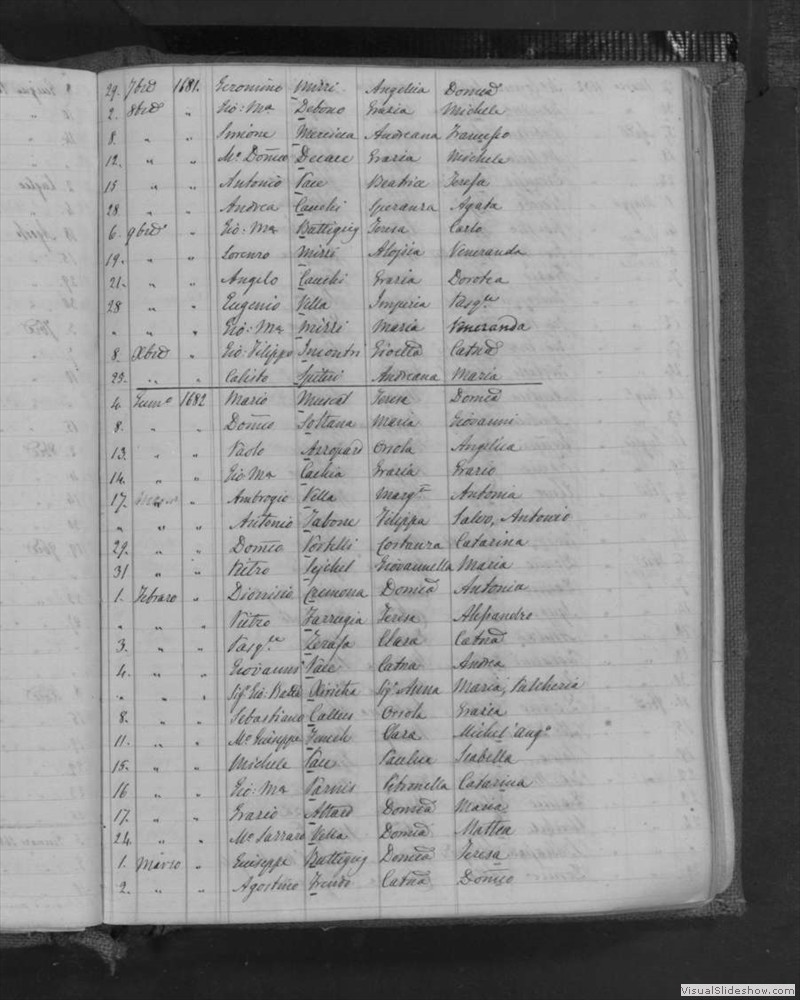 29. 7bre 1681. Geronimo Mizzi Angelica Domca
2. 8bre " Gio: Ma Debono Grazia Michele
8. " " Simone Mercieca Andreana Francesco
12. " " Mo Domco Decare Grazia Michele
15 " " Antonio Pace Beatrice Teresa
28. " " Andrea Cauchi Speranza Agata
6. 9bre " Gio: Ma Buttigieg Teresa Carlo
19. " " Lorenzo Mizzi Aloisia Veneranda
21. " " Angelo Cauchi Grazia Dorotea
28 " " Eugenio Vella Imperia Pasqle
" " " Gio: Ma Mizzi Maria Veneranda
8. Xbre " Gio: Filippo Incontri Catna
23. " " Calisto Spiteri Andreana Maria
4. 1682 Mario Muscat Teresa Domca
8. " " Domco Soltana Maria Giovanni
13. " " Paolo Azzopard Orsola Angelica
14. " " Gio Ma Cachia Grazia Grazio
17. " " Ambrogio Vella Margta Antonia
" " " Antonio Tabone Filippa Salvo, Antonio
29. " " Domco Portelli Costanza Catarina
31 " " Pietro Sejchel Giovannella Maria
1. Febraro " Dionisio Cremona Domca Antonia
" " " Pietro Farrugia Teresa Alessandro
3. " " Pasqle Zerafa Clara Catna
4. " " Giovanni Pace Catna Andrea
" " " Sigr Gio: Batta Xiricha Sigra Anna Maria, Pulcheria
8. " " Sebastiano Callus Orsola Grazia
11. " " Mo Giuseppe Fenech Clara Michel'Ango
15. " " Michele Pace Paulica Isabella
16 " " Gio: Ma Parnis Petronella Catarina
17. " " Grazio Attard Domca Maria
24. " " Mo Vella Domca Mattea
1. Marzo " Giuseppe Buttigieg Domca Teresa
2. " " Agostino Catna Domco
VisualSlideshow.com